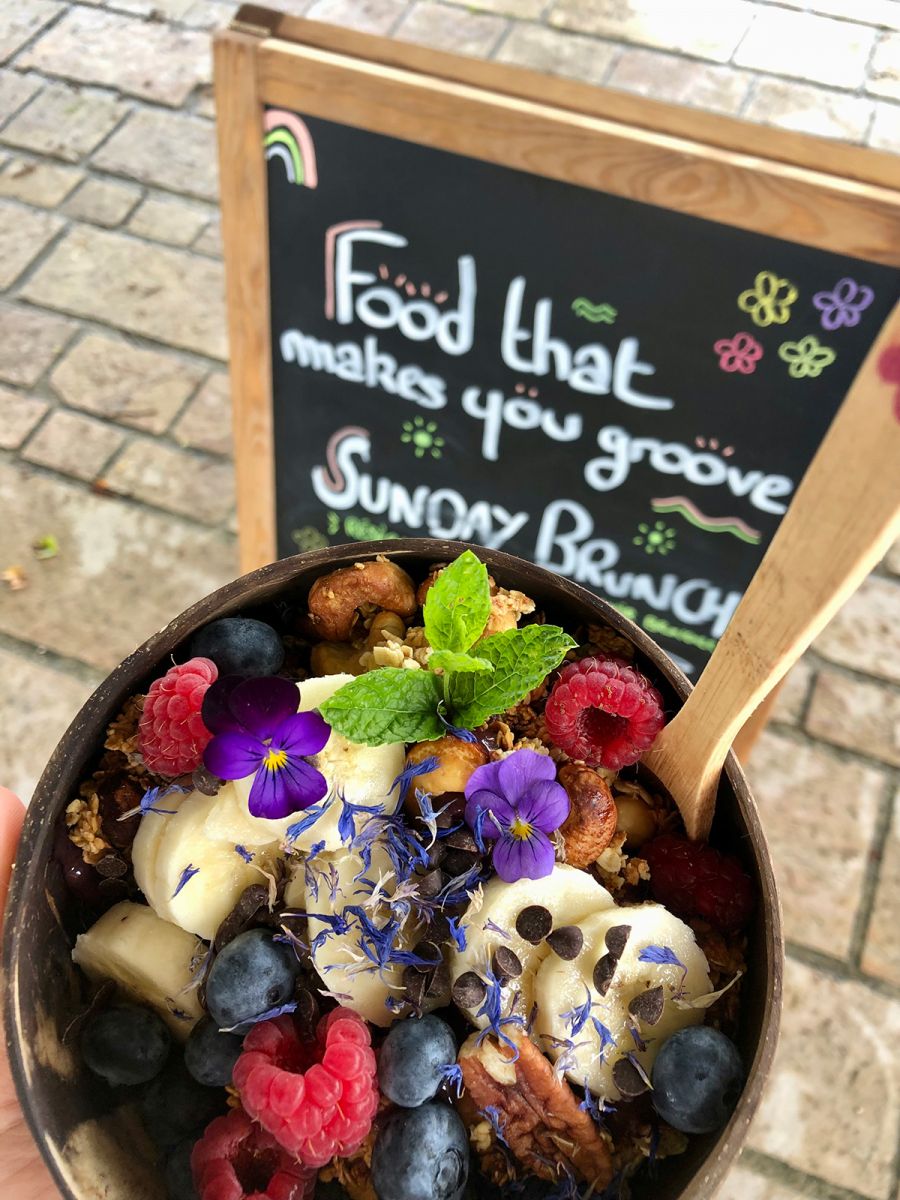 Food that
makes you groove
SUNDAY BRUNCH